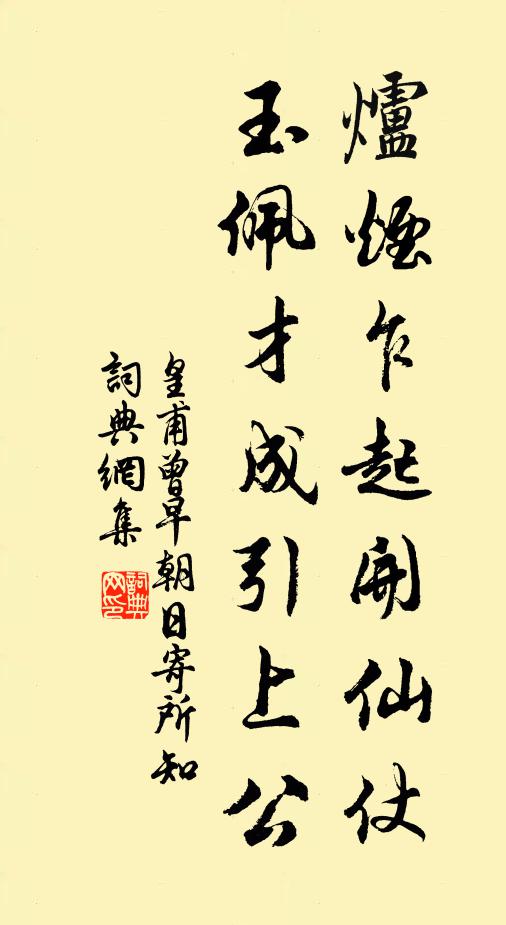 爐煙乍起開仙仗
玉佩才成引上公
皇甫曾早朝日寄所知
詞典網集
詞典网印